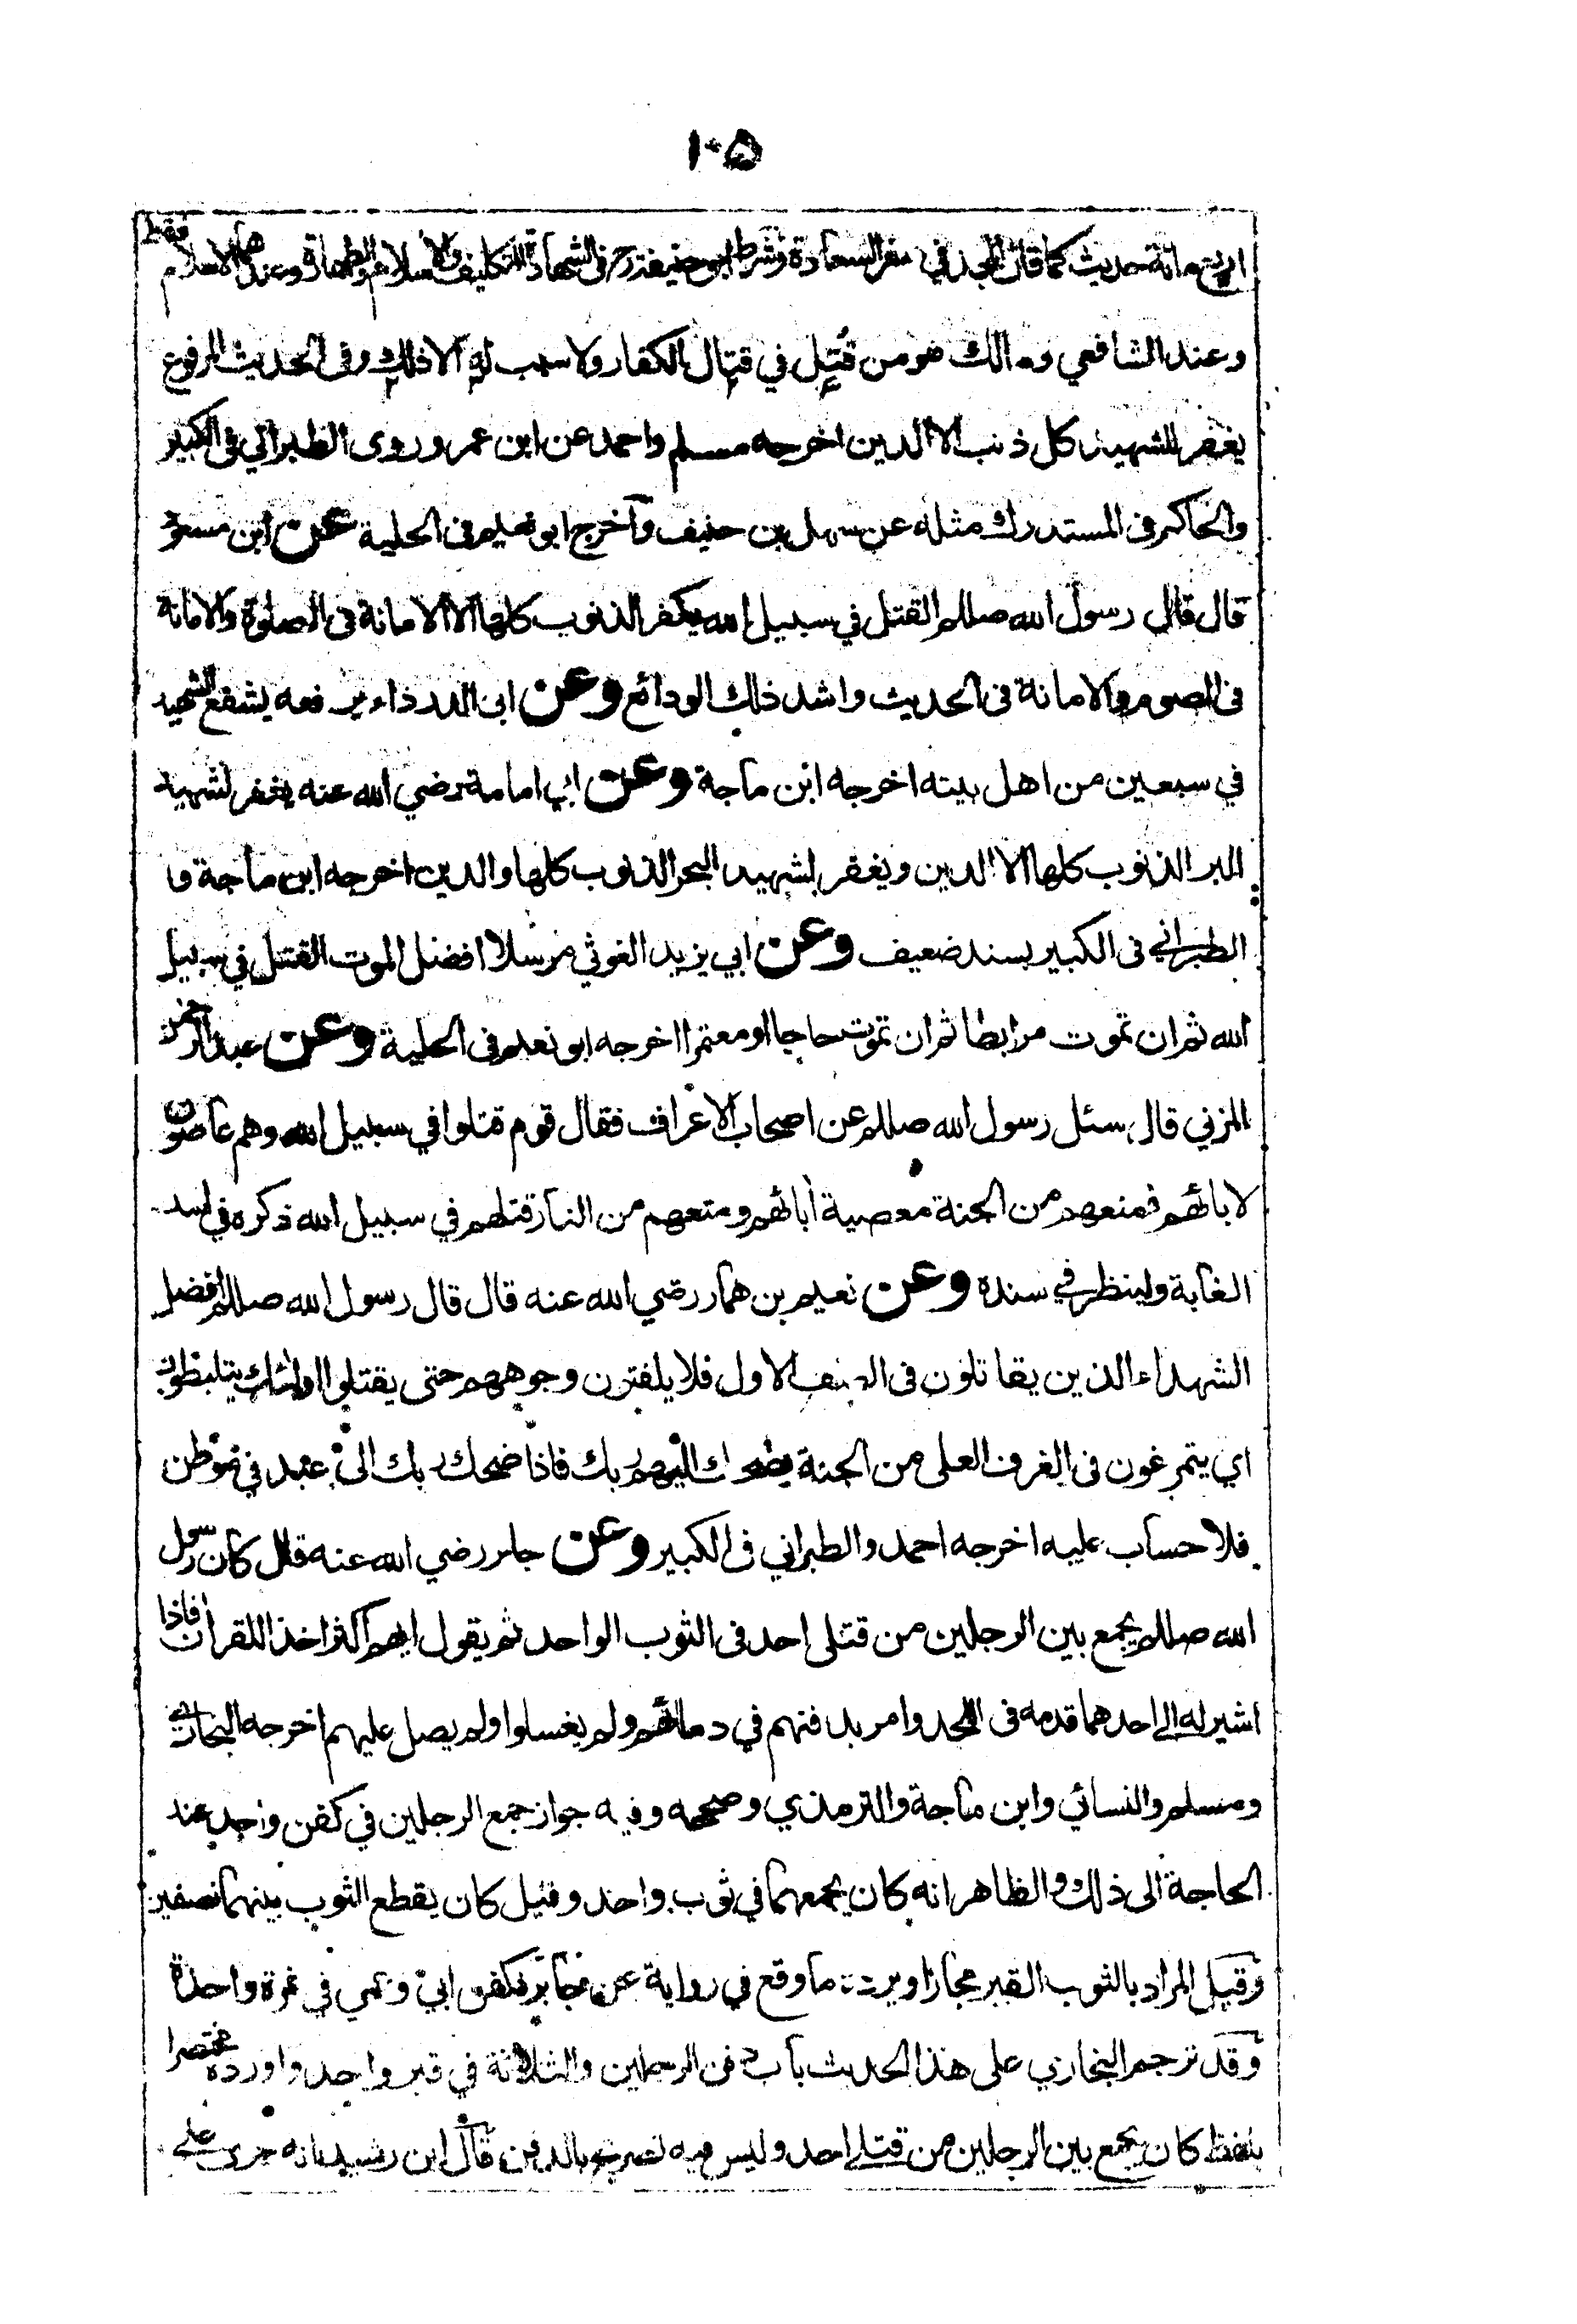 ١٠۵
اربع مائة حديث كما قال المجد في سفر السعادة وشرط ابو حنيفة رح فى الشهادة التكليف والاسلام والطهارة وعندهما الاسلام فقط
وعند الشافعي ومالك هو من قُتِل في قتال الكفار ولا سبب له الا ذلك وفى الحديث المرفوع
يغفر للشهيد كل ذنب الا الدين اخرجه مسلم واحمد عن ابن عمر وروى الطبراني فى الكبير
والحاكم فى المستدرك مثله عن سهل بن حنيف وآخرج ابو نعيم فى الحلية عن ابن مسعود
قال قال رسول الله صللم القتل في سبيل الله يكفر الذنوب كلها الا الامانة فى الصلوة والامانة
فى الصوم والامانة فى الحديث واشد ذلك الودائع وعن ابى الدرداء يرفعه يشفع الشهيد
في سبعين من اهل بيته اخرجه ابن ماجة وعن ابي امامة رضي الله عنه يغفر لشهيد
البر الذنوب كلها الا الدين ويغفر لشهيد البحر الذنوب كلها والدين اخرجه ابن ماجة و
الطبراني فى الكبير بسند ضعيف وعن ابي يزيد الغوثي مرسلا افضل الموت القتل في سبيل
الله ثم ان تموت مرابطا ثم ان تموت حاجا او معتمرا اخرجه ابو نعيم فى الحلية وعن عبد الرحمن
المزني قال سئل رسول الله صللم عن اصحاب الاعراف فقال قوم قتلوا في سبيل الله وهم عاصون
لابائهم فمنعهم من الجنة معصية أبائهم ومنعهم من النار قتلهم في سبيل الله ذكره في اسد
الغابة ولينظر في سنده وعن نعيم بن همار رضي الله عنه قال قال رسول الله صللم افضل
الشهداء الذين يقاتلون فى الصف الاول فلا يلفتون وجوههم حتى يقتلوا اولئك يتلبطون
اي يتمرغون فى الغرف العلى من الجنة يضحك اليهم ربك فاذا ضحك ربك الى عبد في موطن
فلا حساب عليه اخرجه احمد والطبراني فى الكبير وعن جابر رضي الله عنه قال كان رسول
الله صللم يجمع بين الرجلين من قتلى احد فى الثوب الواحد ثم يقول ايهم اكثر اخذا للقرأن فاذا
اشير له الى احدهما قدمه فى اللحد وامر بدفنهم في دمائهم ولم يغسلوا ولم يصل عليهم اخرجه البخاري
ومسلم والنسائي وابن ماجة والترمذي وصححه وفيه جواز جمع الرجلين في كفن واحد عند
الحاجة الى ذلك والظاهر انه كان يجمعهما في ثوب واحد وقيل كان يقطع الثوب بينهما نصفين
وقيل المراد بالثوب القبر مجازا ويرده ما وقع في رواية عن جابر فكفن ابي وعمي في نمرة واحدة
وقد ترجم البخاري على هذا الحديث باب دفن الرجلين والثلاثة في قبر واحد واورده مختصرا
بلفظ كان يجمع بين الرجلين من قتلى احد وليس فيه تصريح بالدفن قال ابن رشيد بانه جرى على